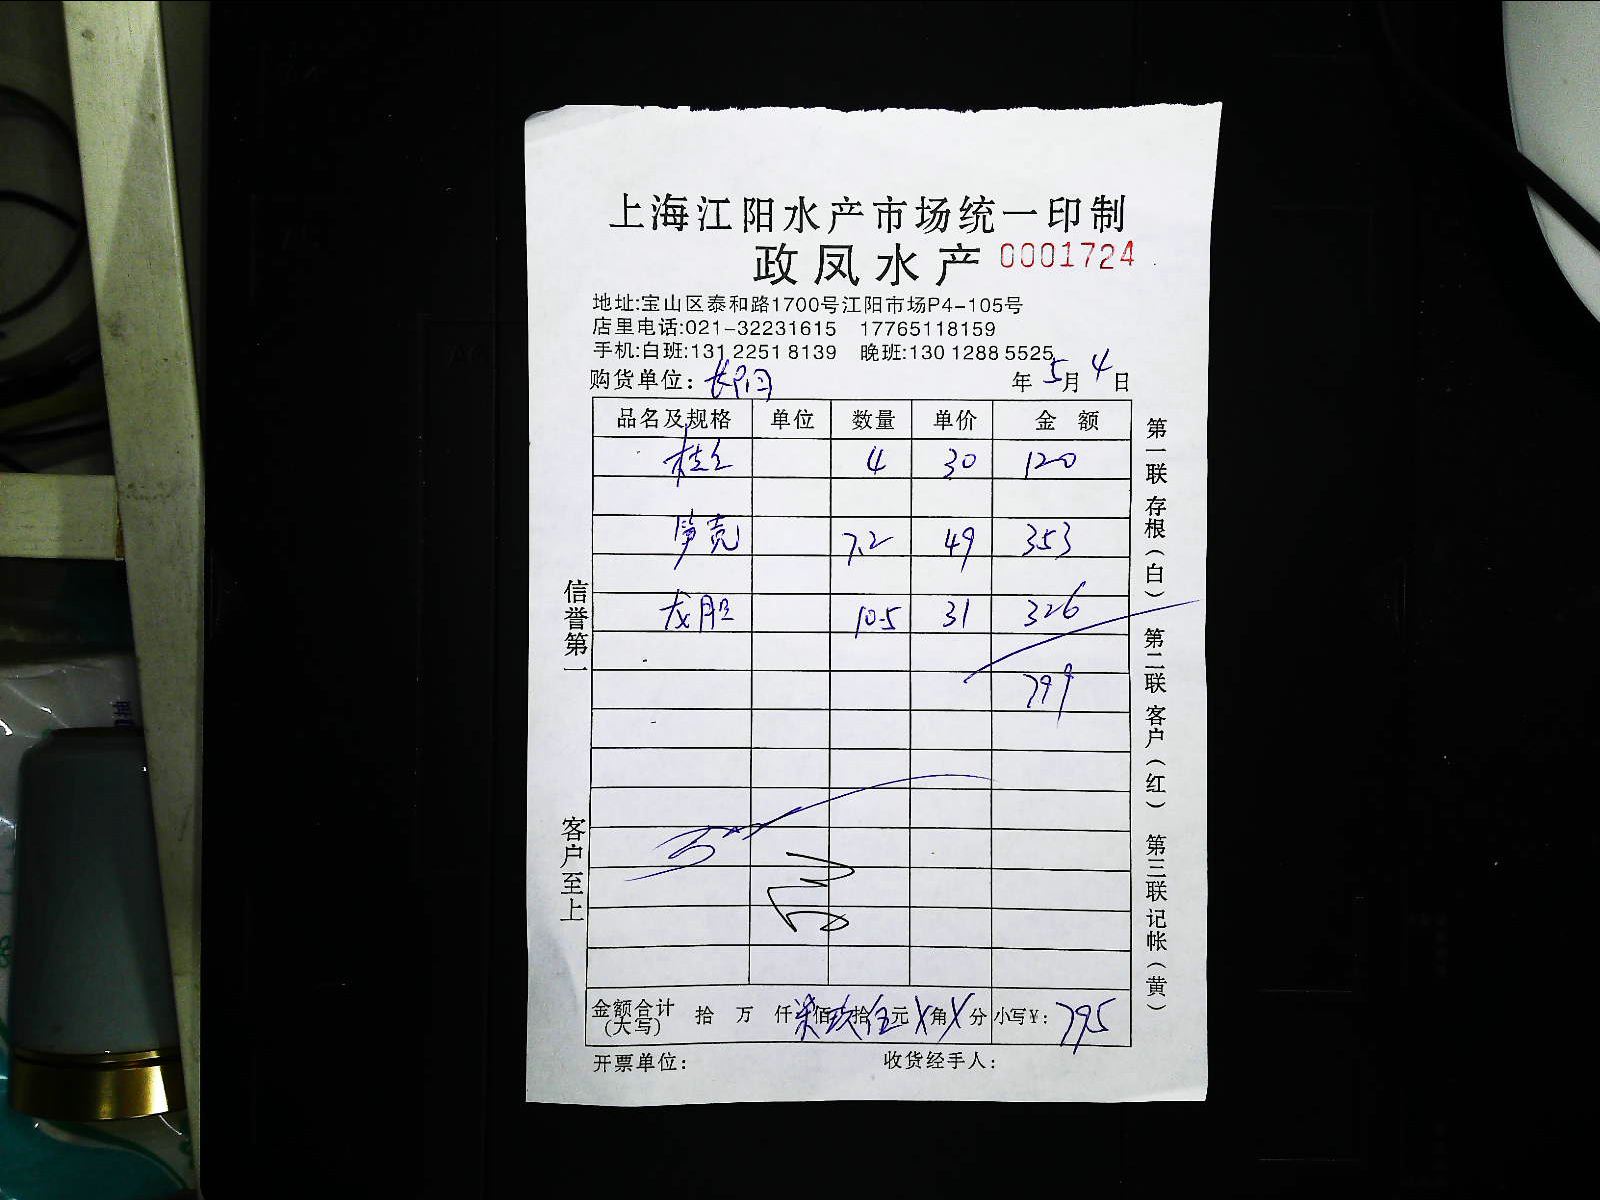 上海江阳水产市场统一印制
政凤水产 0001724
地址:宝山区泰和路1700号江阳市场P4-105号
店里电话:021-32231615 17765118159
手机:白班:131 2251 8139 晚班:130 1288 5525
购货单位: 长阳 年 5月 4日
品名及规格 单位 数量 单价 金 额
4 30 120
笋壳 7.2 49 353
龙胆 10.5 31 326
799
金额合计(大写) 拾 万 仟柒佰玖拾伍元X角X分 小写¥: 795
开票单位: 收货经手人:
信誉第一
客户至上
第一联存根(白) 第二联客户(红) 第三联记帐(黄)